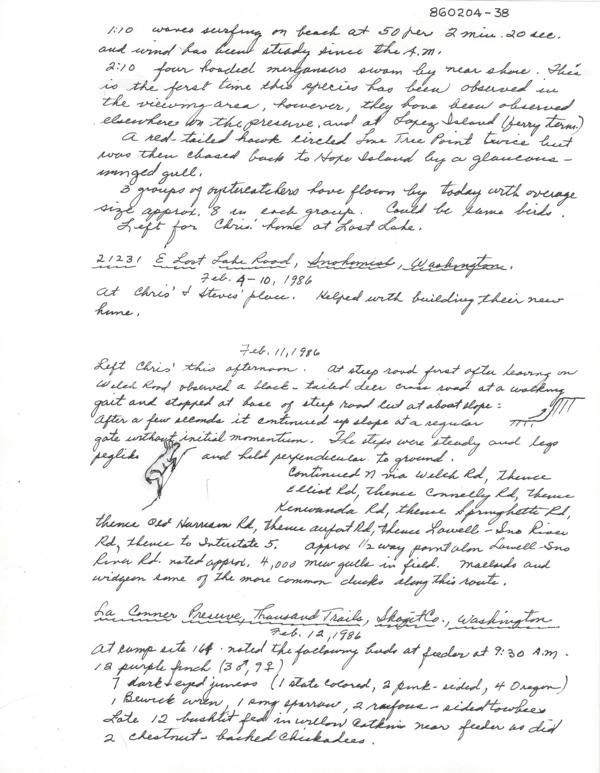 860204-38
1:10 waves surfing on beach at 50 per 2 min. 20 sec.
and wind has been steady since the A.M.
2:10 four hooded mergansers swam by near shore. This
is the first time this species has been observed in
the viewing area, however, they have been observed
elsewhere on the preserve, and at Lopez Island (ferry term.)
A red-tailed hawk circled Lone Tree Point twice but
was then chased back to Hope Island by a glaucous-
winged gull.
3 groups of oystercatchers have flown by today with average
size approx. 8 in each group. Could be same birds.
Left for Chris' home at Lost Lake.
21231 E Lost Lake Road, Snohomish, Washington.
Feb. 4-10, 1986
At Chris' & Steves' place. Helped with building their new
home.
Feb. 11, 1986
Left Chris' this afternoon. At steep road first after leaving on
Welch Road observed a black-tailed deer cross road at a walking
gait and stopped at base of steep road cut at about slope:
After a few seconds it continued up slope at a regular
gate without initial momentum. The steps were steady and legs
peglike and held perpendicular to ground.
Continued N via Welch Rd, thence
Elliot Rd, thence Connelly Rd, thence
Kenwanda Rd, thence Springhetti Rd,
thence Old Harrison Rd, thence airport Rd, thence Lowell-Sno River
Rd, thence to Interstate 5. Approx 1/2 way point alon Lowell-Sno
River Rd. noted approx. 4,000 mew gulls in field. Mallards and
widgeon some of the more common ducks along this route.
La Conner Preserve, Thousand Trails, Skagit Co., Washington
Feb. 12, 1986
At camp site 164 noted the following birds at feeder at 9:30 A.M.
12 purple finch (3♂, 9♀)
7 dark-eyed juncos (1 slate colored, 2 pink-sided, 4 Oregon)
1 Bewick wren, 1 song sparrow, 2 rufous-sided towhees
Late 12 bushtit fed in willow catkins near feeder as did
2 chestnut-backed chickadees.